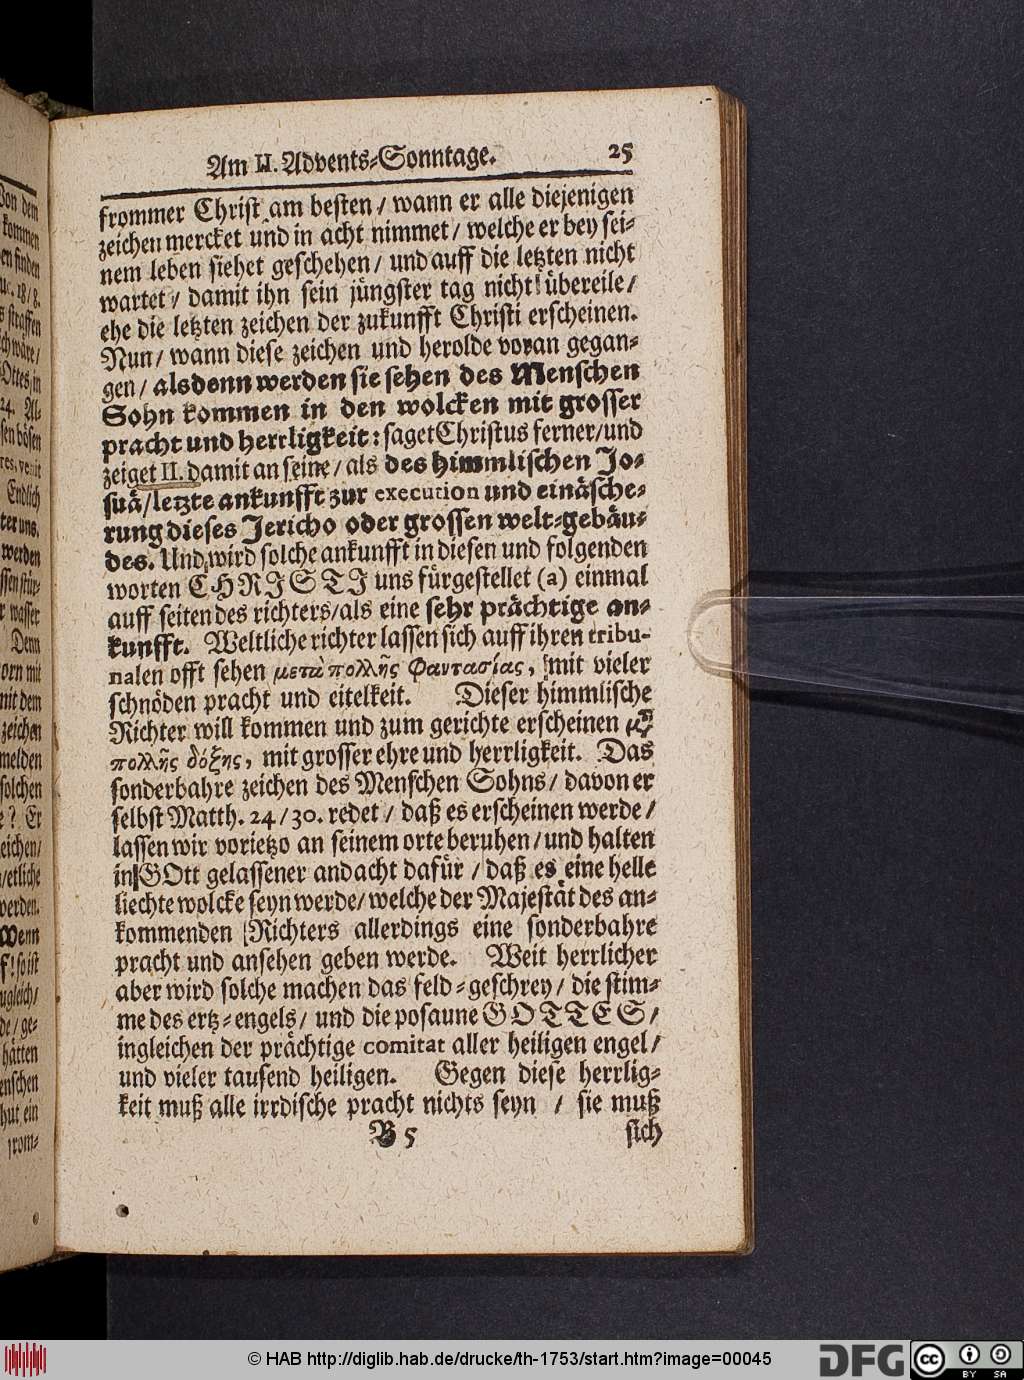 Am II. Advents-Sonntage. 25
frommer Christ am besten / wann er alle diejenigen
zeichen mercket und in acht nimmet / welche er bey sei-
nem leben siehet geschehen / und auff die letzten nicht
wartet / damit ihn sein jüngster tag nicht übereile /
ehe die letzten zeichen der zukunfft Christi erscheinen.
Nun / wann diese zeichen und herolde voran gegan-
gen / alsdenn werden sie sehen des Menschen
Sohn kommen in den wolcken mit grosser
pracht und herrligkeit: saget Christus ferner/und
zeiget II. damit an seine / als des himmlischen Jo-
suä/letzte ankunfft zur execution und einäsche-
rung dieses Jericho oder grossen welt-gebäu-
des. Und wird solche ankunfft in diesen und folgenden
worten CHRISTI uns fürgestellet (a) einmal
auff seiten des richters/als eine sehr prächtige an-
kunfft. Weltliche richter lassen sich auff ihren tribu-
nalen offt sehen μετὰ πολλῆς φαντασίας, mit vieler
schnöden pracht und eitelkeit. Dieser himmlische
Richter will kommen und zum gerichte erscheinen μξ
πολλῆς δόξης, mit grosser ehre und herrligkeit. Das
sonderbahre zeichen des Menschen Sohns / davon er
selbst Matth. 24 / 30. redet / daß es erscheinen werde /
lassen wir vorietzo an seinem orte beruhen / und halten
in GOtt gelassener andacht dafür / daß es eine helle
liechte wolcke seyn werde/ welche der Majestät des an-
kommenden Richters allerdings eine sonderbahre
pracht und ansehen geben werde. Weit herrlicher
aber wird solche machen das feld-geschrey / die stim-
me des ertz-engels / und die posaune GOTTES /
ingleichen der prächtige comitat aller heiligen engel /
und vieler tausend heiligen. Gegen diese herrlig-
keit muß alle irrdische pracht nichts seyn / sie muß
B 5 sich
Von dem
kommen
en finden
uc. 18/8.
straffen
ch wäre/
Ottes, in
24. Al-
sen bösen
Endlich
ter uns.
werden
wasser
Denn
orn mit
mit dem
zeichen
melden
solchen
e? Er
eichen/
/etliche
verden.
Wenn
f! so ist
ugleich/
de / ge-
hätten
enschen
hut ein
from-
© HAB http://diglib.hab.de/drucke/th-1753/start.htm?image=00045
DFG
cc
BY
SA